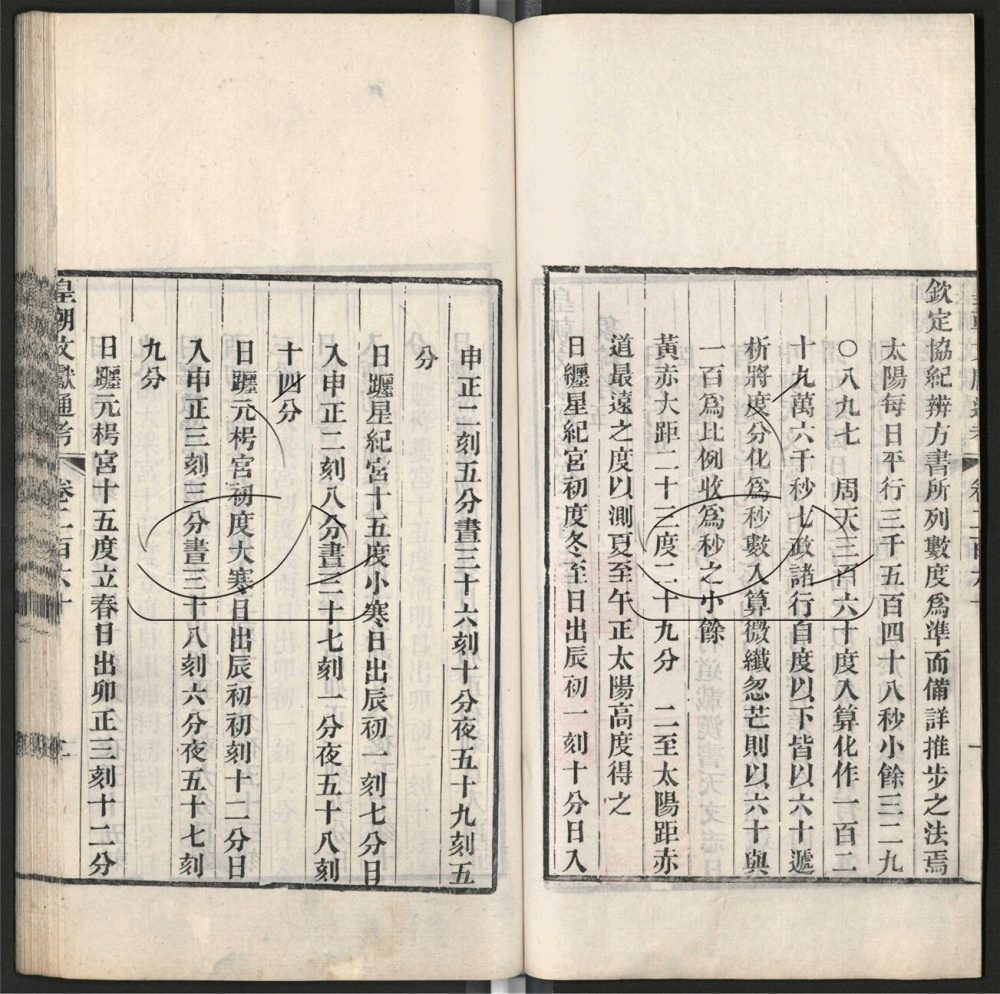 欽定協紀辨方書所列數度爲準而備詳推步之法焉
太陽每日平行三千五百四十八秒小餘三二九
〇八九七　周天三百六十度入算化作一百二
十九萬六千秒七政諸行自度以下皆以六十遞
析將度分化爲秒數入算微纖忽芒則以六十與
一百爲比例收爲秒之小餘
黃赤大距二十三度二十九分　二至太陽距赤
道最遠之度以測夏至午正太陽高度得之
日纏星紀宮初度冬至日出辰初一刻十分日入
申正二刻五分晝三十六刻十分夜五十九刻五
分
日躔星紀宮十五度小寒日出辰初一刻七分日
入申正二刻八分晝三十七刻一分夜五十八刻
十四分
日躔元枵宮初度大寒日出辰初初刻十二分日
入申正三刻三分晝三十八刻六分夜五十七刻
九分
日躔元枵宮十五度立春日出卯正三刻十二分
皇朝文獻通考　卷二百六十　二